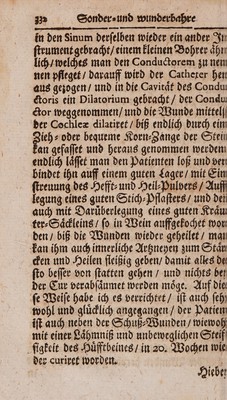 332 Sonder- und wunderbahre
in den Sinum derselben wieder ein ander In-
strument gebracht / einem kleinen Bohrer ähn-
lich / welches man den Conductorem zu nen-
nen pfleget / darauff wird der Catheter her-
aus gezogen / und in die Cavität des Condu-
ctoris ein Dilatorium gebracht / der Condu-
ctor weggenommen / und die Wunde mittelst
der Cochleæ dilatiret / biß endlich durch ein
Zieh- oder bequeme Korn-Zange der Stein
kan gefasset und heraus genommen werden:
endlich lässet man den Patienten loß und ver-
bindet ihn auff einem guten Lager / mit Ein-
streuung des Hefft- und Heil-Pulvers / Auff-
legung eines guten Stich-Pflasters / und denn
auch mit Darüberlegung eines guten Kräu-
ter-Säckleins / so in Wein auffgekocht wor-
den / biß die Wunden wieder geheilet / man
kan ihm auch innerliche Artzneyen zum Stär-
cken und Heilen fleißig geben / damit alles de-
sto besser von statten gehen / und nichts bey
der Cur verabsäumet werden möge. Auf die-
se Weise habe ich es verrichtet / ist auch sehr
wohl und glücklich angegangen / der Patient
ist auch neben der Schuß-Wunden / wiewohl
mit einer Lähmniß und unbeweglichen Steif-
figkeit des Hüfftbeines / in 20. Wochen wie-
der curiret worden.
Hieber